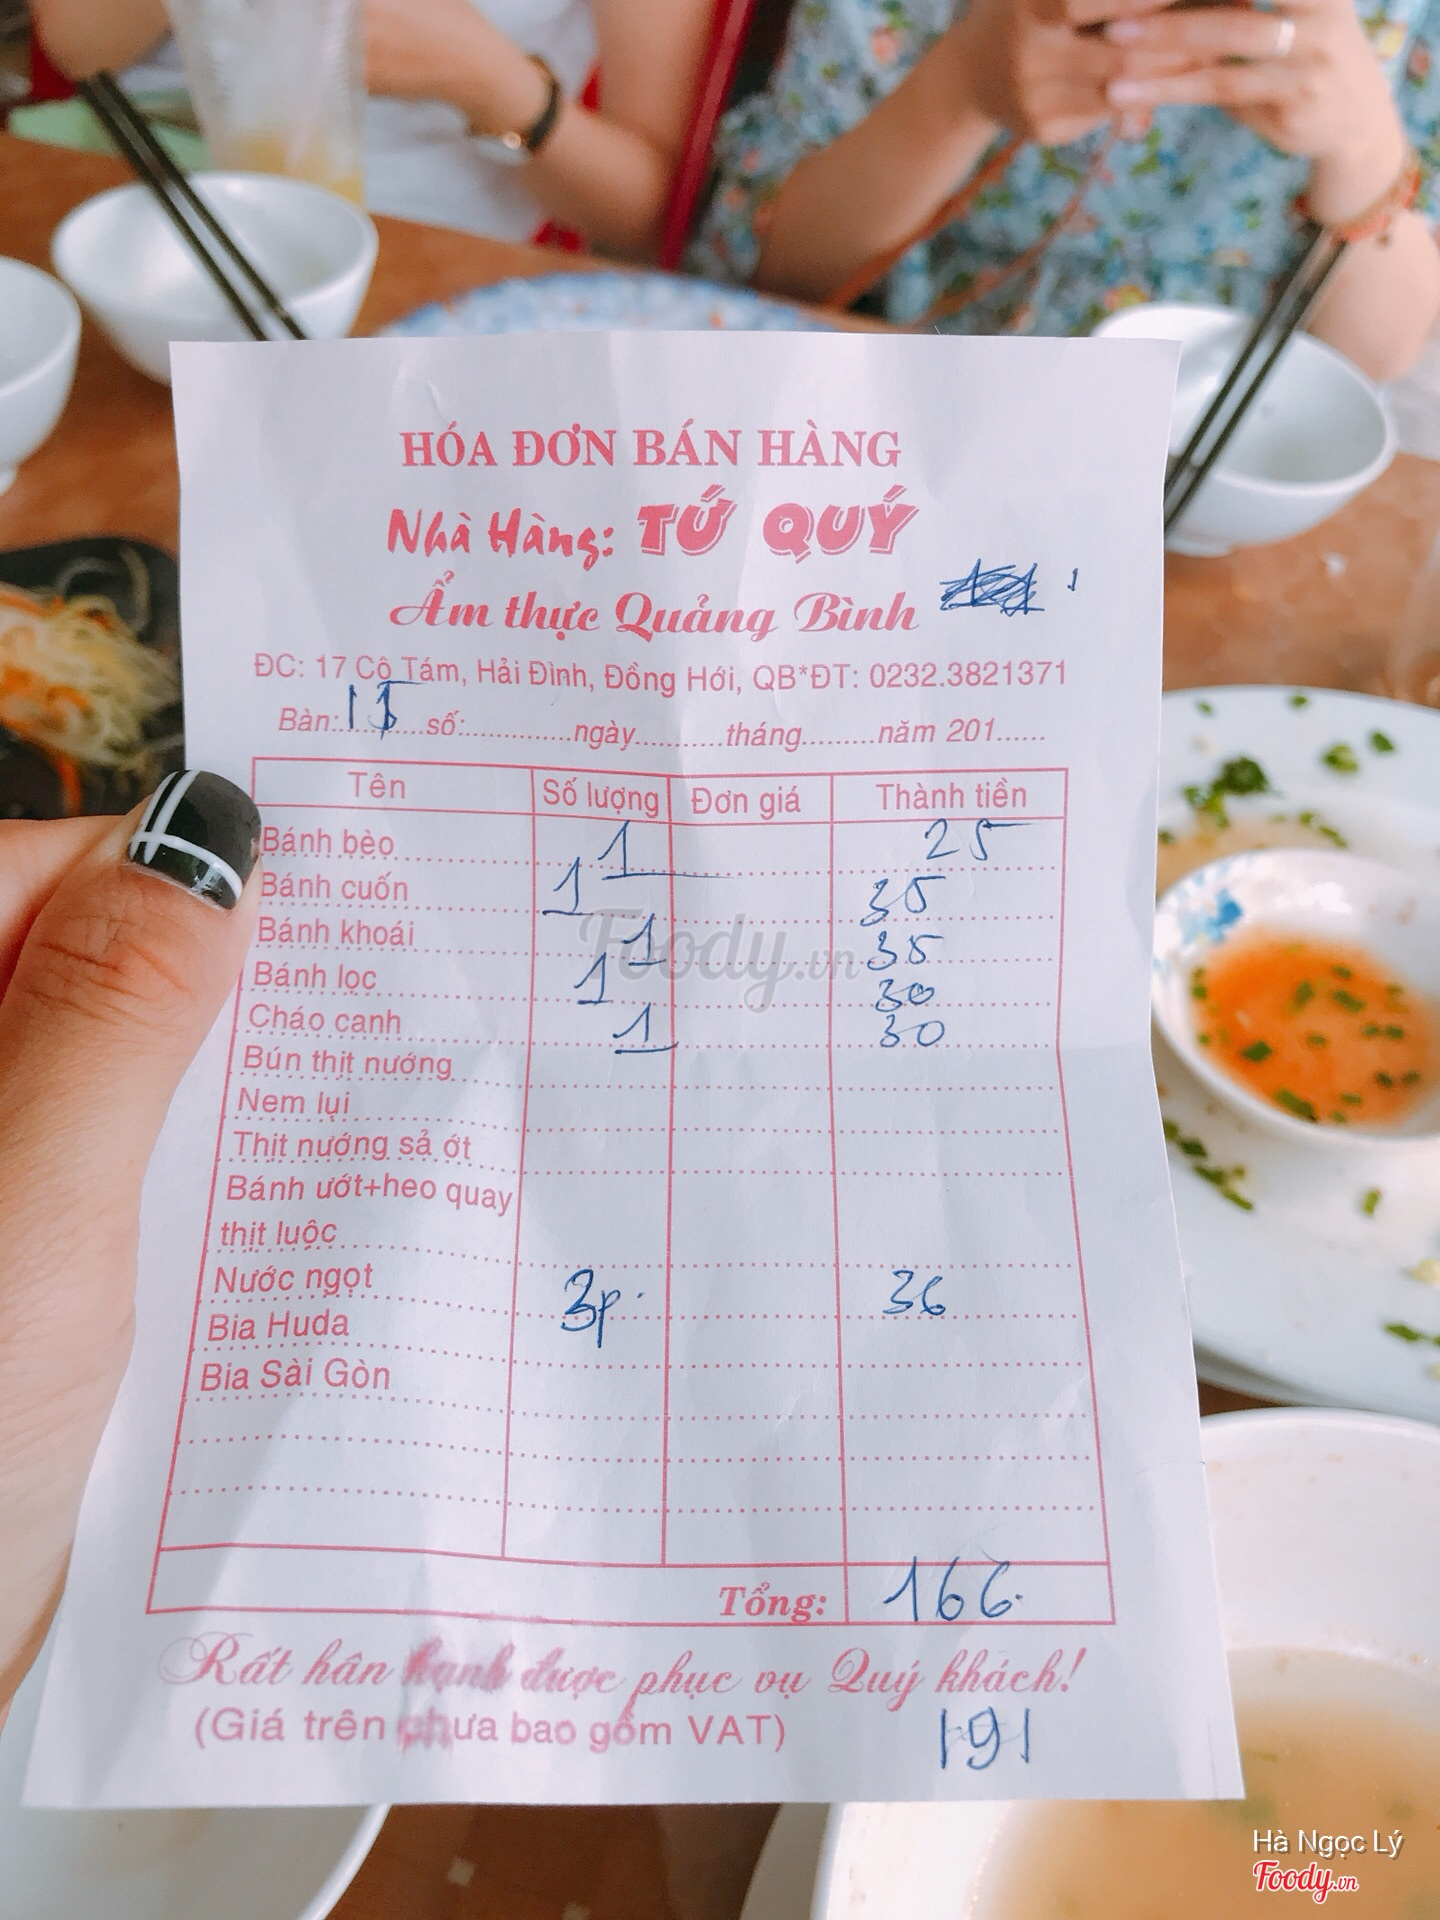 HÓA ĐƠN BÁN HÀNG
Nhà Hàng: TỨ QUÝ
Ẩm thực Quảng Bình
ĐC: 17 Cô Tám, Hải Đình, Đồng Hới, QB*ĐT: 0232.3821371
Bàn:..15....số:...............ngày............tháng.........năm 201......
Tên Số lượng Đơn giá Thành tiền
Bánh bèo 1 25
Bánh cuốn 1 35
Bánh khoái 1 35
Bánh lọc 1 30
Cháo canh 1 30
Bún thịt nướng
Nem lụi
Thịt nướng sả ớt
Bánh ướt+heo quay
thịt luộc
Nước ngọt 3p. 36
Bia Huda
Bia Sài Gòn
Tổng: 166.
Rất hân hạnh được phục vụ Quý khách!
(Giá trên chưa bao gồm VAT) 191
Foody.vn
Hà Ngọc Lý
Foody.vn